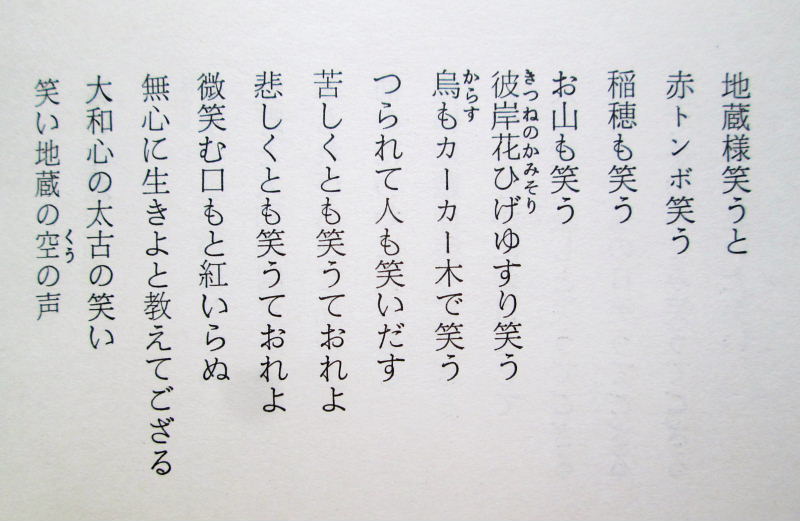 地蔵様笑うと
赤トンボ笑う
稲穂も笑う
お山も笑う
彼岸花ひげゆすり笑う
きつねのかみそり
烏もカーカー木で笑う
からす
つられて人も笑いだす
苦しくとも笑うておれよ
悲しくとも笑うておれよ
微笑む口もと紅いらぬ
無心に生きよと教えてござる
大和心の太古の笑い
笑い地蔵の空の声
くう